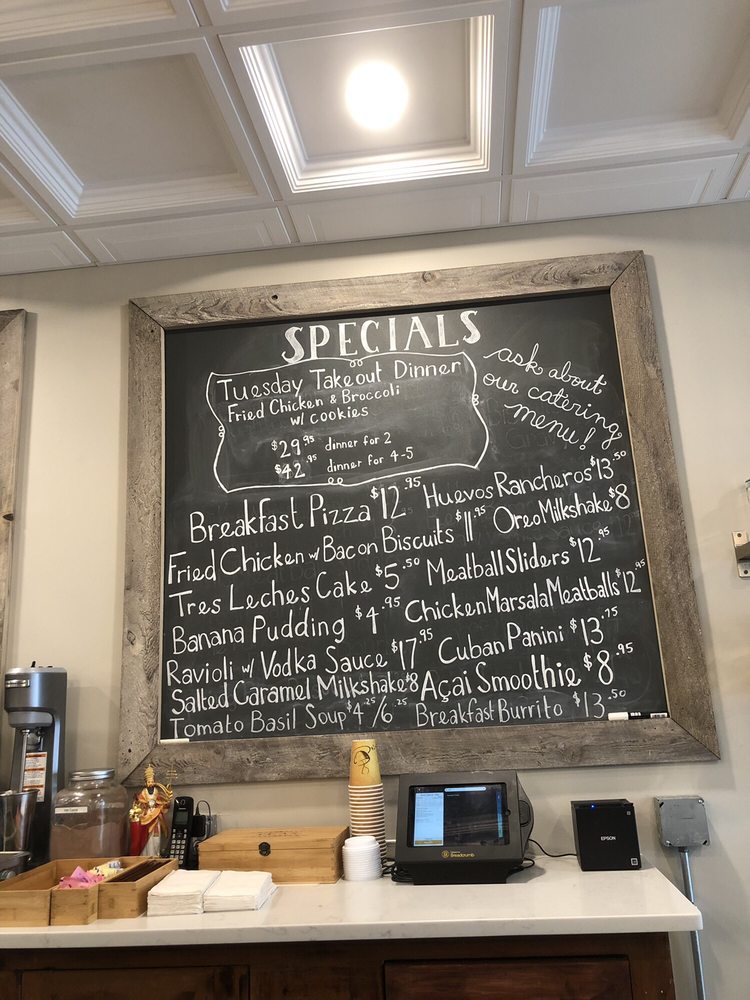 SPECIALS
Tuesday Takeout Dinner
Fried Chicken & Broccoli
w/ cookies
$29.95 dinner for 2
$42.95 dinner for 4-5
ask about
our catering
menu!
Breakfast Pizza $12.95
Fried Chicken w/ Bacon Biscuits $11.95
Tres Leches Cake $5.50
Banana Pudding $4.95
Ravioli w/ Vodka Sauce $17.95
Salted Caramel Milkshake $8
Tomato Basil Soup $4.25/6.25
Huevos Rancheros $13.50
Oreo Milkshake $8
Meatball Sliders $12.95
Chicken Marsala Meatballs $12.95
Cuban Panini $13.75
Açai Smoothie $8.95
Breakfast Burrito $13.50
Breadcrumb
EPSON